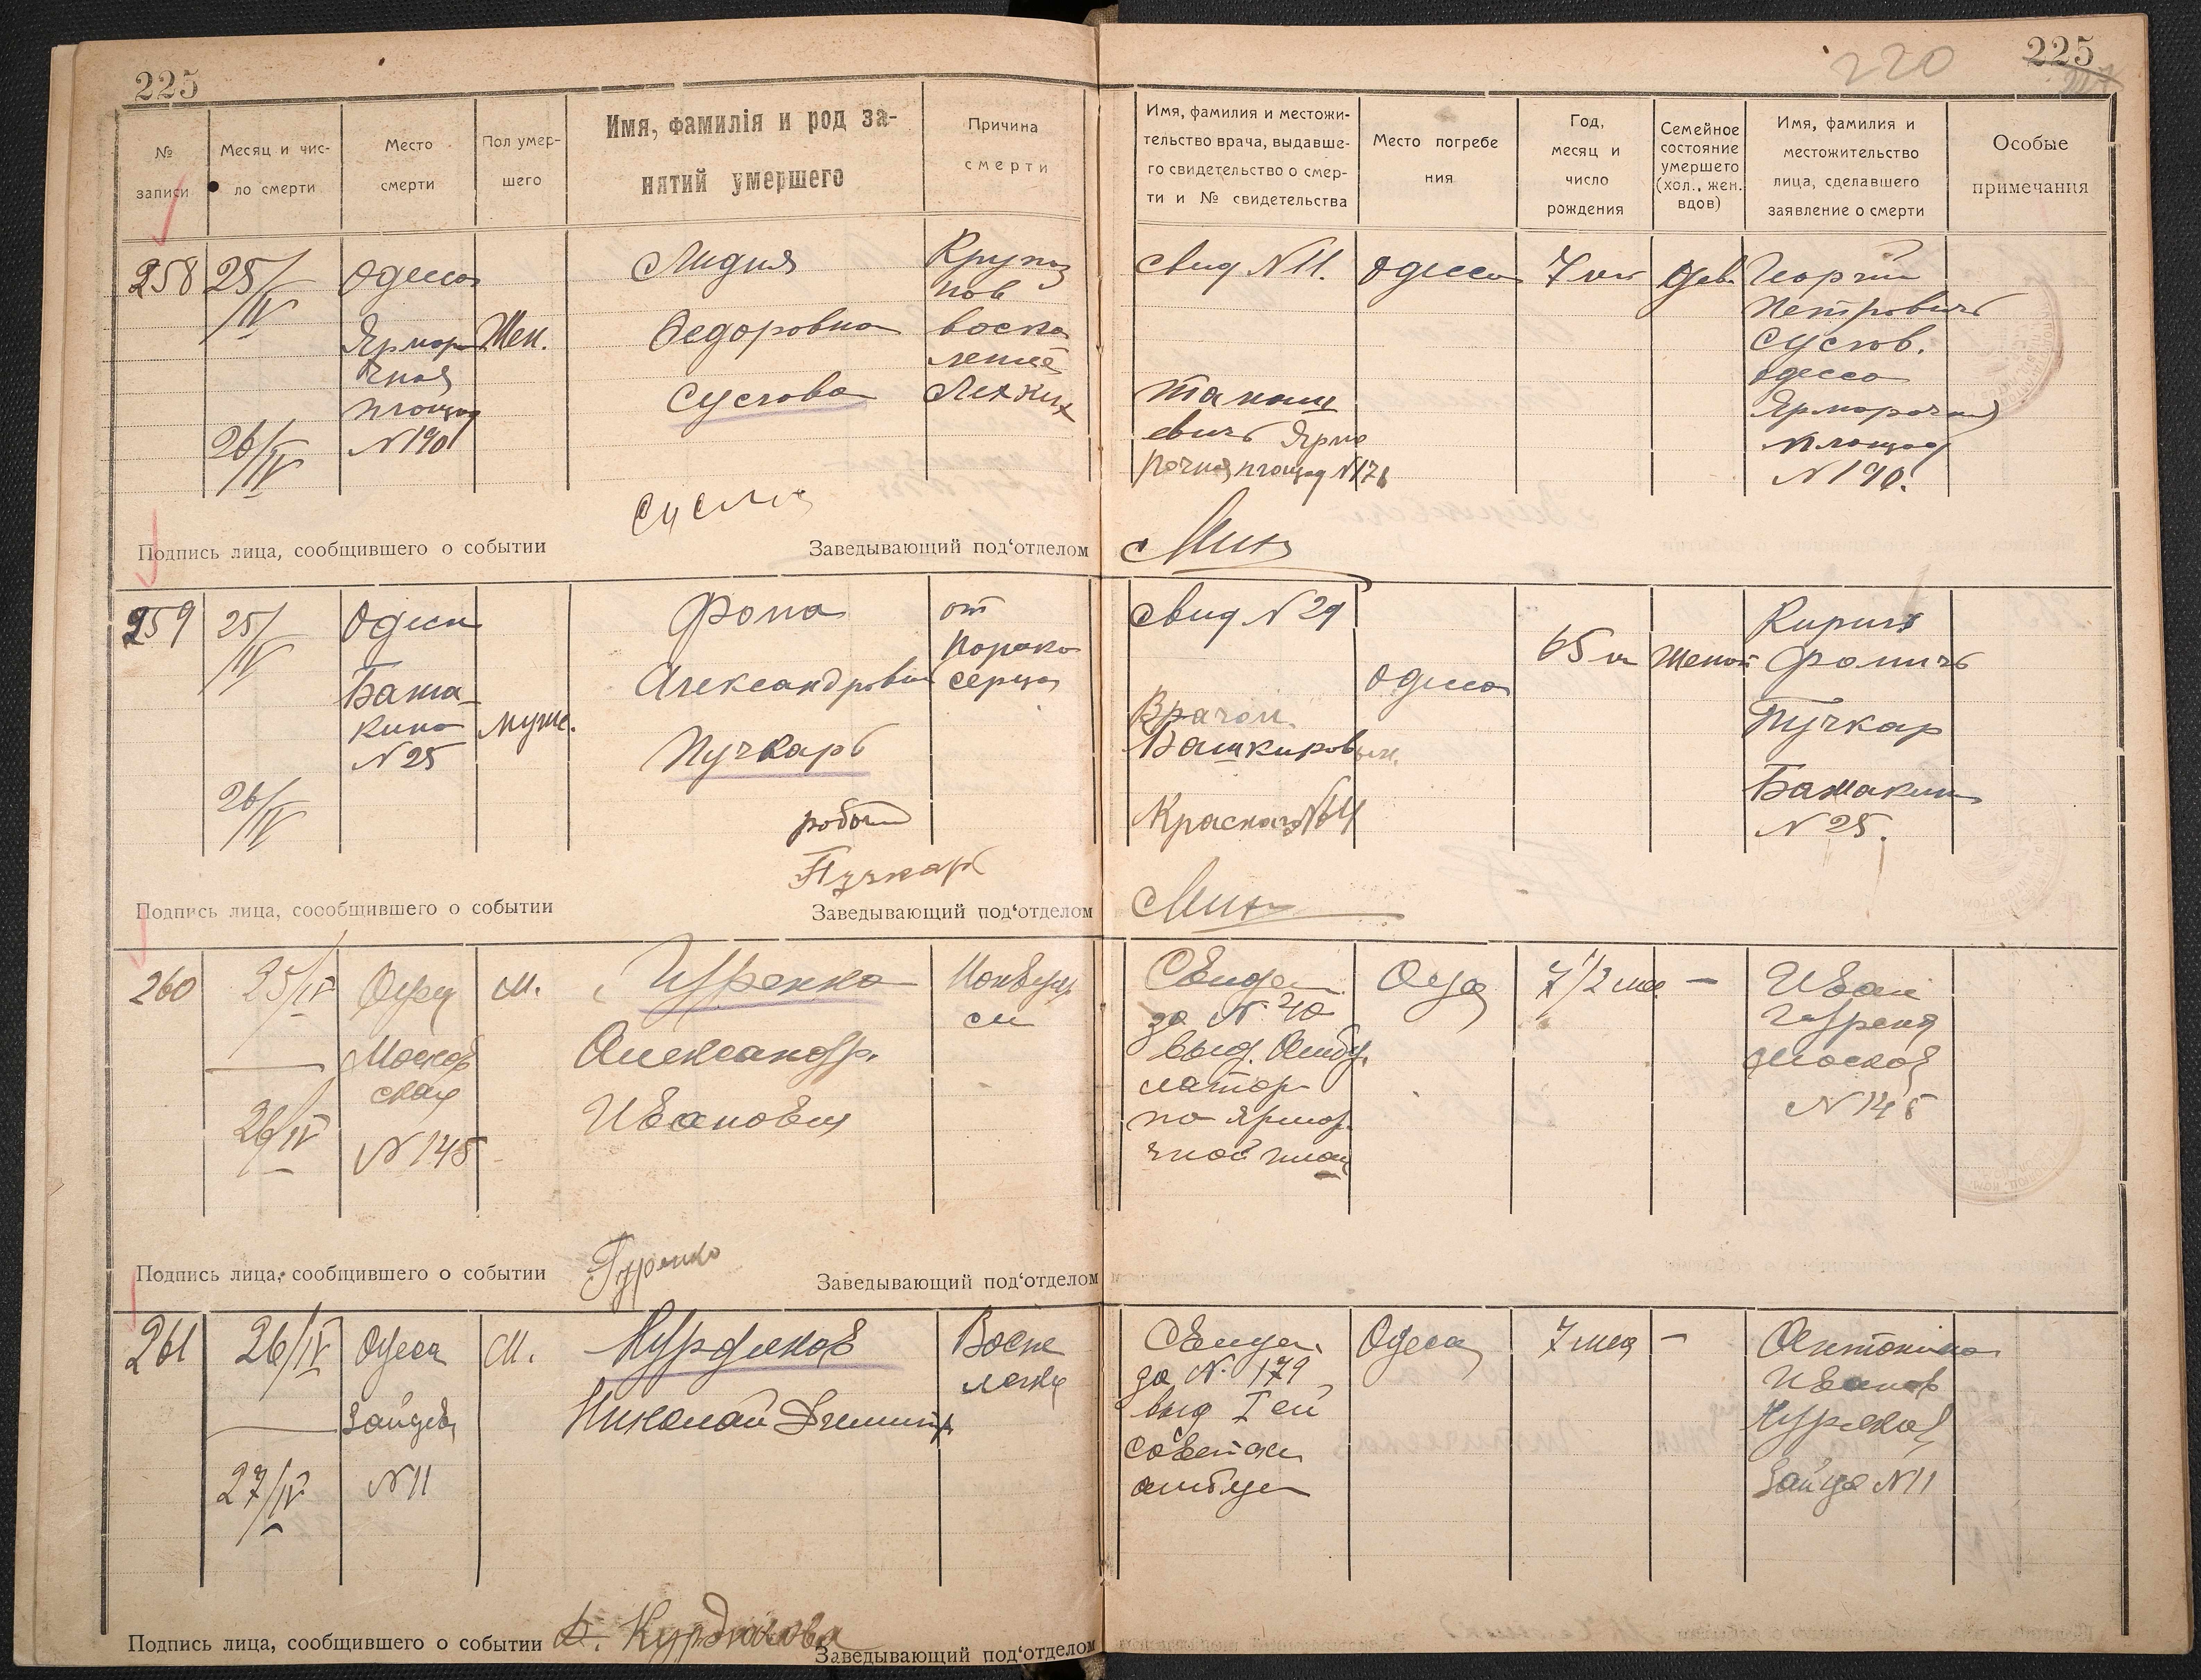 225
220
225
№ записи
Месяц и чис-
ло смерти
Место
смерти
Пол умер-
шего
Имя, фамилія и род за-
нятий умершего
Причина
смерти
Имя, фамилия и местожи-
тельство врача, выдавше-
го свидетельство о смер-
ти и № свидетельства
Место погребе
ния
Год,
месяц и
число
рождения
Семейное
состояние
умершего
(хол., жен.
вдов)
Имя, фамилия и
местожительство
лица, сделавшего
заявление о смерти
Особые
примечания
258
25/IV
26/IV
Одесса
Ярмор
чная
площад
N 190
Жен.
Лидия
Федоровна
Суслова
Крупоз
нов
воспа
ление
Легких
свид N 11.
Ярмо
рочная площад N 178
Одесса
7
дев.
Георгий
Петровичъ
Суслов.
Одесса
Ярморочная
площад
N 190.
Подпись лица, сообщившего о событии
Заведывающий под‘отделом
259
25/IV
26/IV
Одесса
N 25
муж.
Фома
Александрович
Пучкарь
от
порока
сердца
свид N 29
Врачом
Башкировым.
Одесса
65
Женат
Кирилл
Фомичъ
Пучкар
N 25.
Пучкарь
Подпись лица, сосообщившего о событии
Заведывающий под‘отделом
260
25/IV
26/IV
Одесса
Москов
ская
N 145
М.
Гуренко
Александр.
Иванович
Свидет.
за N. 40
выд. Амбу
латор
по Ярмор
чной площ
Одесса
7 1/2 мес.
—
Иван
Гуренко
N 145
Подпись лица, сообщившего о событии
Гуренко
Заведывающий под‘отделом
261
26/IV
27/IV
Одесса
N 11
М.
Курдюков
Николай Дмитр
Воспа
легких
Свидет.
за N. 179
выд I ой
Советск
амбул
Одесса
7 мес
—
Антонина
Иванов
N 11
Подпись лица, сообщившего о событии
Курдюкова
Заведывающий под‘отделом